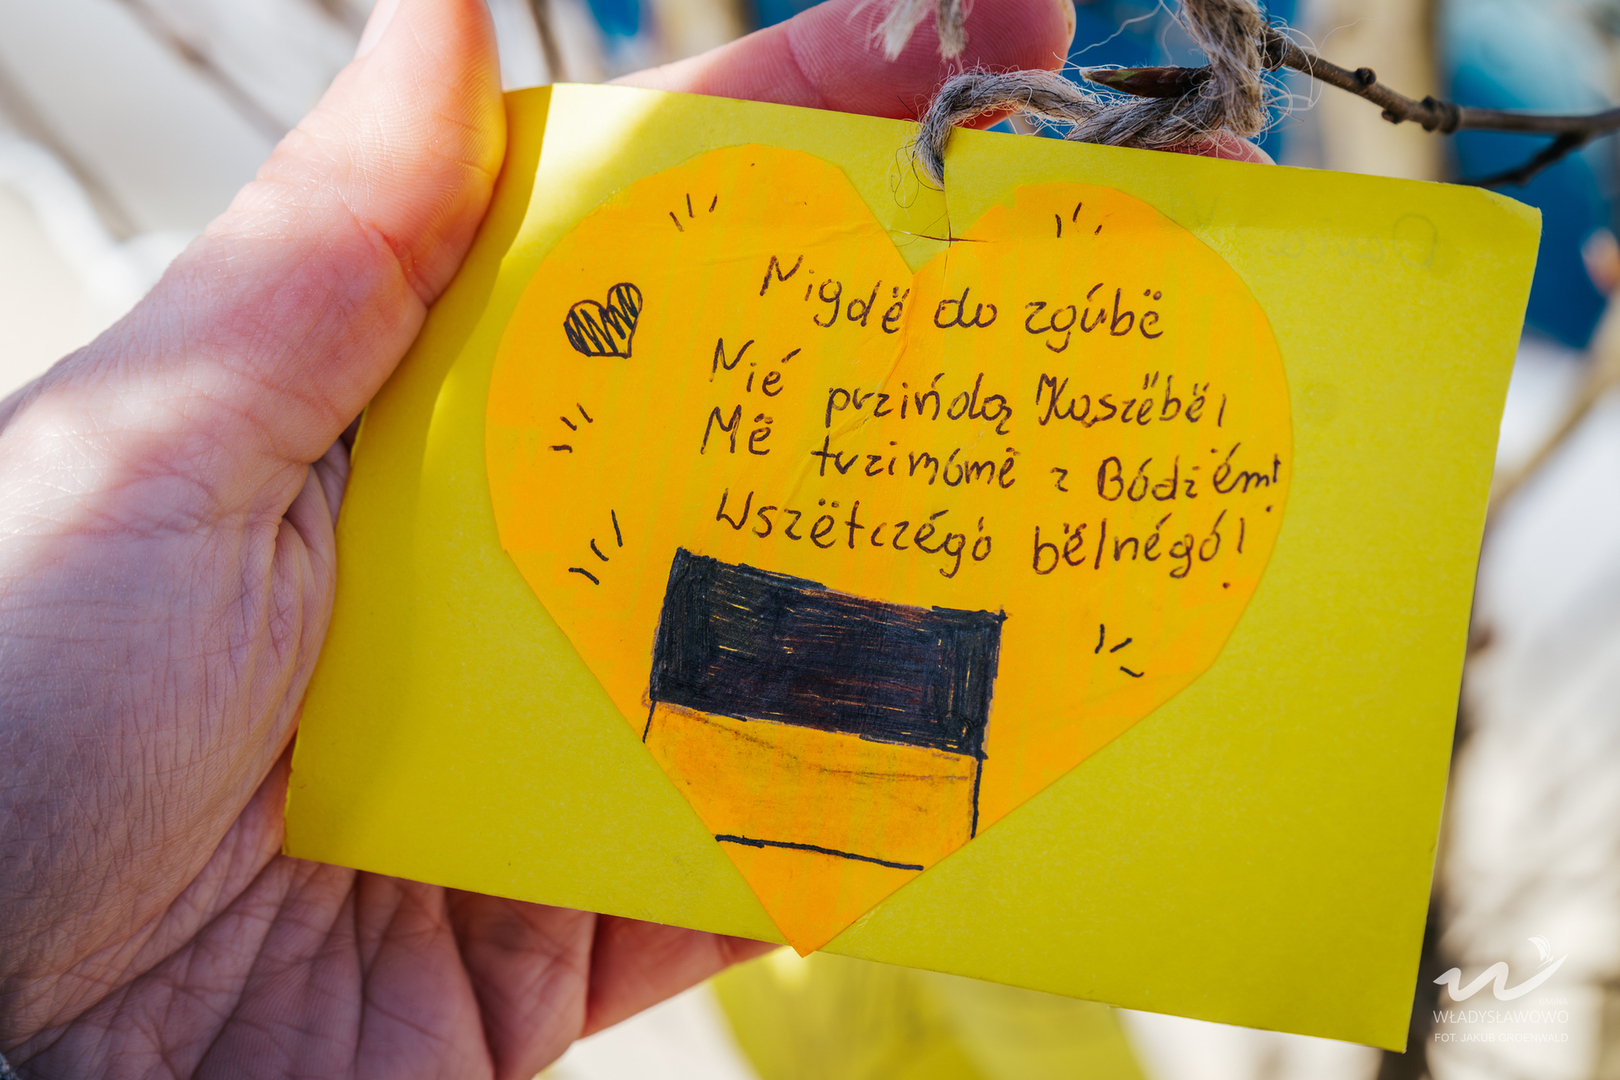 Nigdë do zgúbë
Nié przińdą Kaszëbë,
Më trzimómë z Bódzém!
Wszëtczégó bëlnégó!
WŁADYSŁAWOWO
FOT. JAKUB GROENWALD